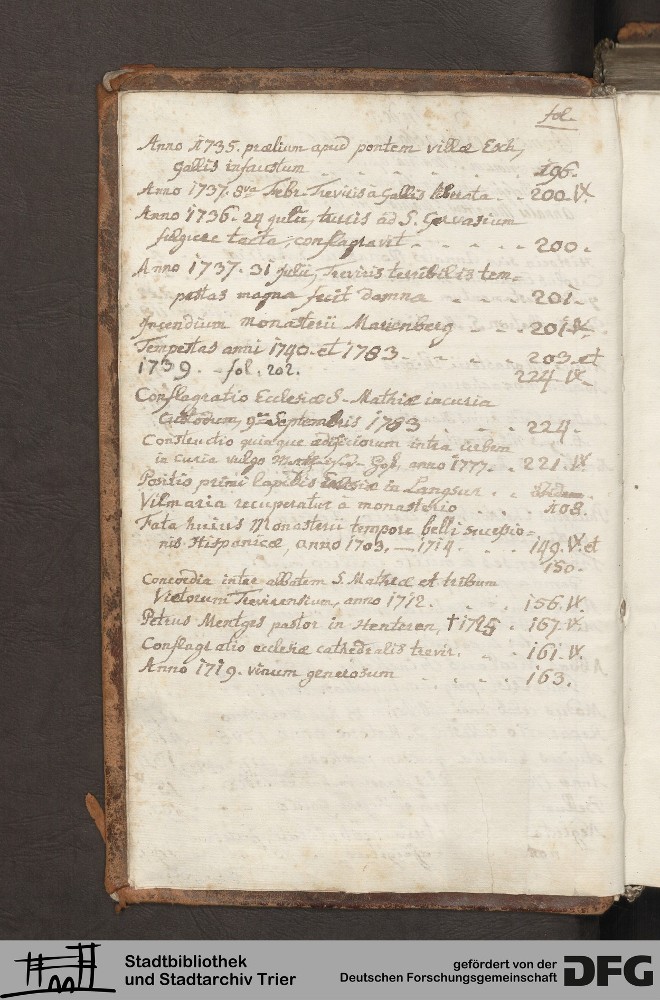 fol.
Anno 1735. prælium apud pontem villæ Esch,
gallis infaustum . . . . . 196.
Anno 1737. 8va Febr. Treviris à Gallis liberata . . 200. V.
Anno 1736. 24 julii, turris ad S. Gervasium
fulgure tacta, conflagravit . . . . . 200.
Anno 1737. 31 julii, Treviris terribilis tem=
pestas magna fecit damna . . . . 201.
Incendium monasterii Marienberg . . . 201. V.
Tempestas anni 1740. et 1783. . . . 203. et
1739. - fol. 202. 224. V.
Conflagratio Ecclesiæ S. Mathiæ incuria
Custodum, 9na Septembris 1783 . . . 224.
Constructio quinque ædificiorum intra urbem
in curia vulgo Gof, anno 1777. . . 221. V.
Positio primi lapidis Ecclesiæ in Langsur . . ibidem
Vilmaria recuperatur à monasterio . . . 108.
Fata huius Monasterii tempore belli succesio=
nis Hispanicæ, anno 1703. — 1714. . . 149. V. et
150.
Concordia inter abbatem S. Mathiæ et tribum
Vietorum Trevirensium, anno 1712. . . . 156. V.
Petrus Mentges pastor in Henteren, † 1725 . 167. V.
Conflagratio ecclesiæ cathedralis trevir. . . 161. V.
Anno 1719. vinum generosum . . . . 163.
Stadtbibliothek
und Stadtarchiv Trier
gefördert von der
Deutschen Forschungsgemeinschaft
DFG